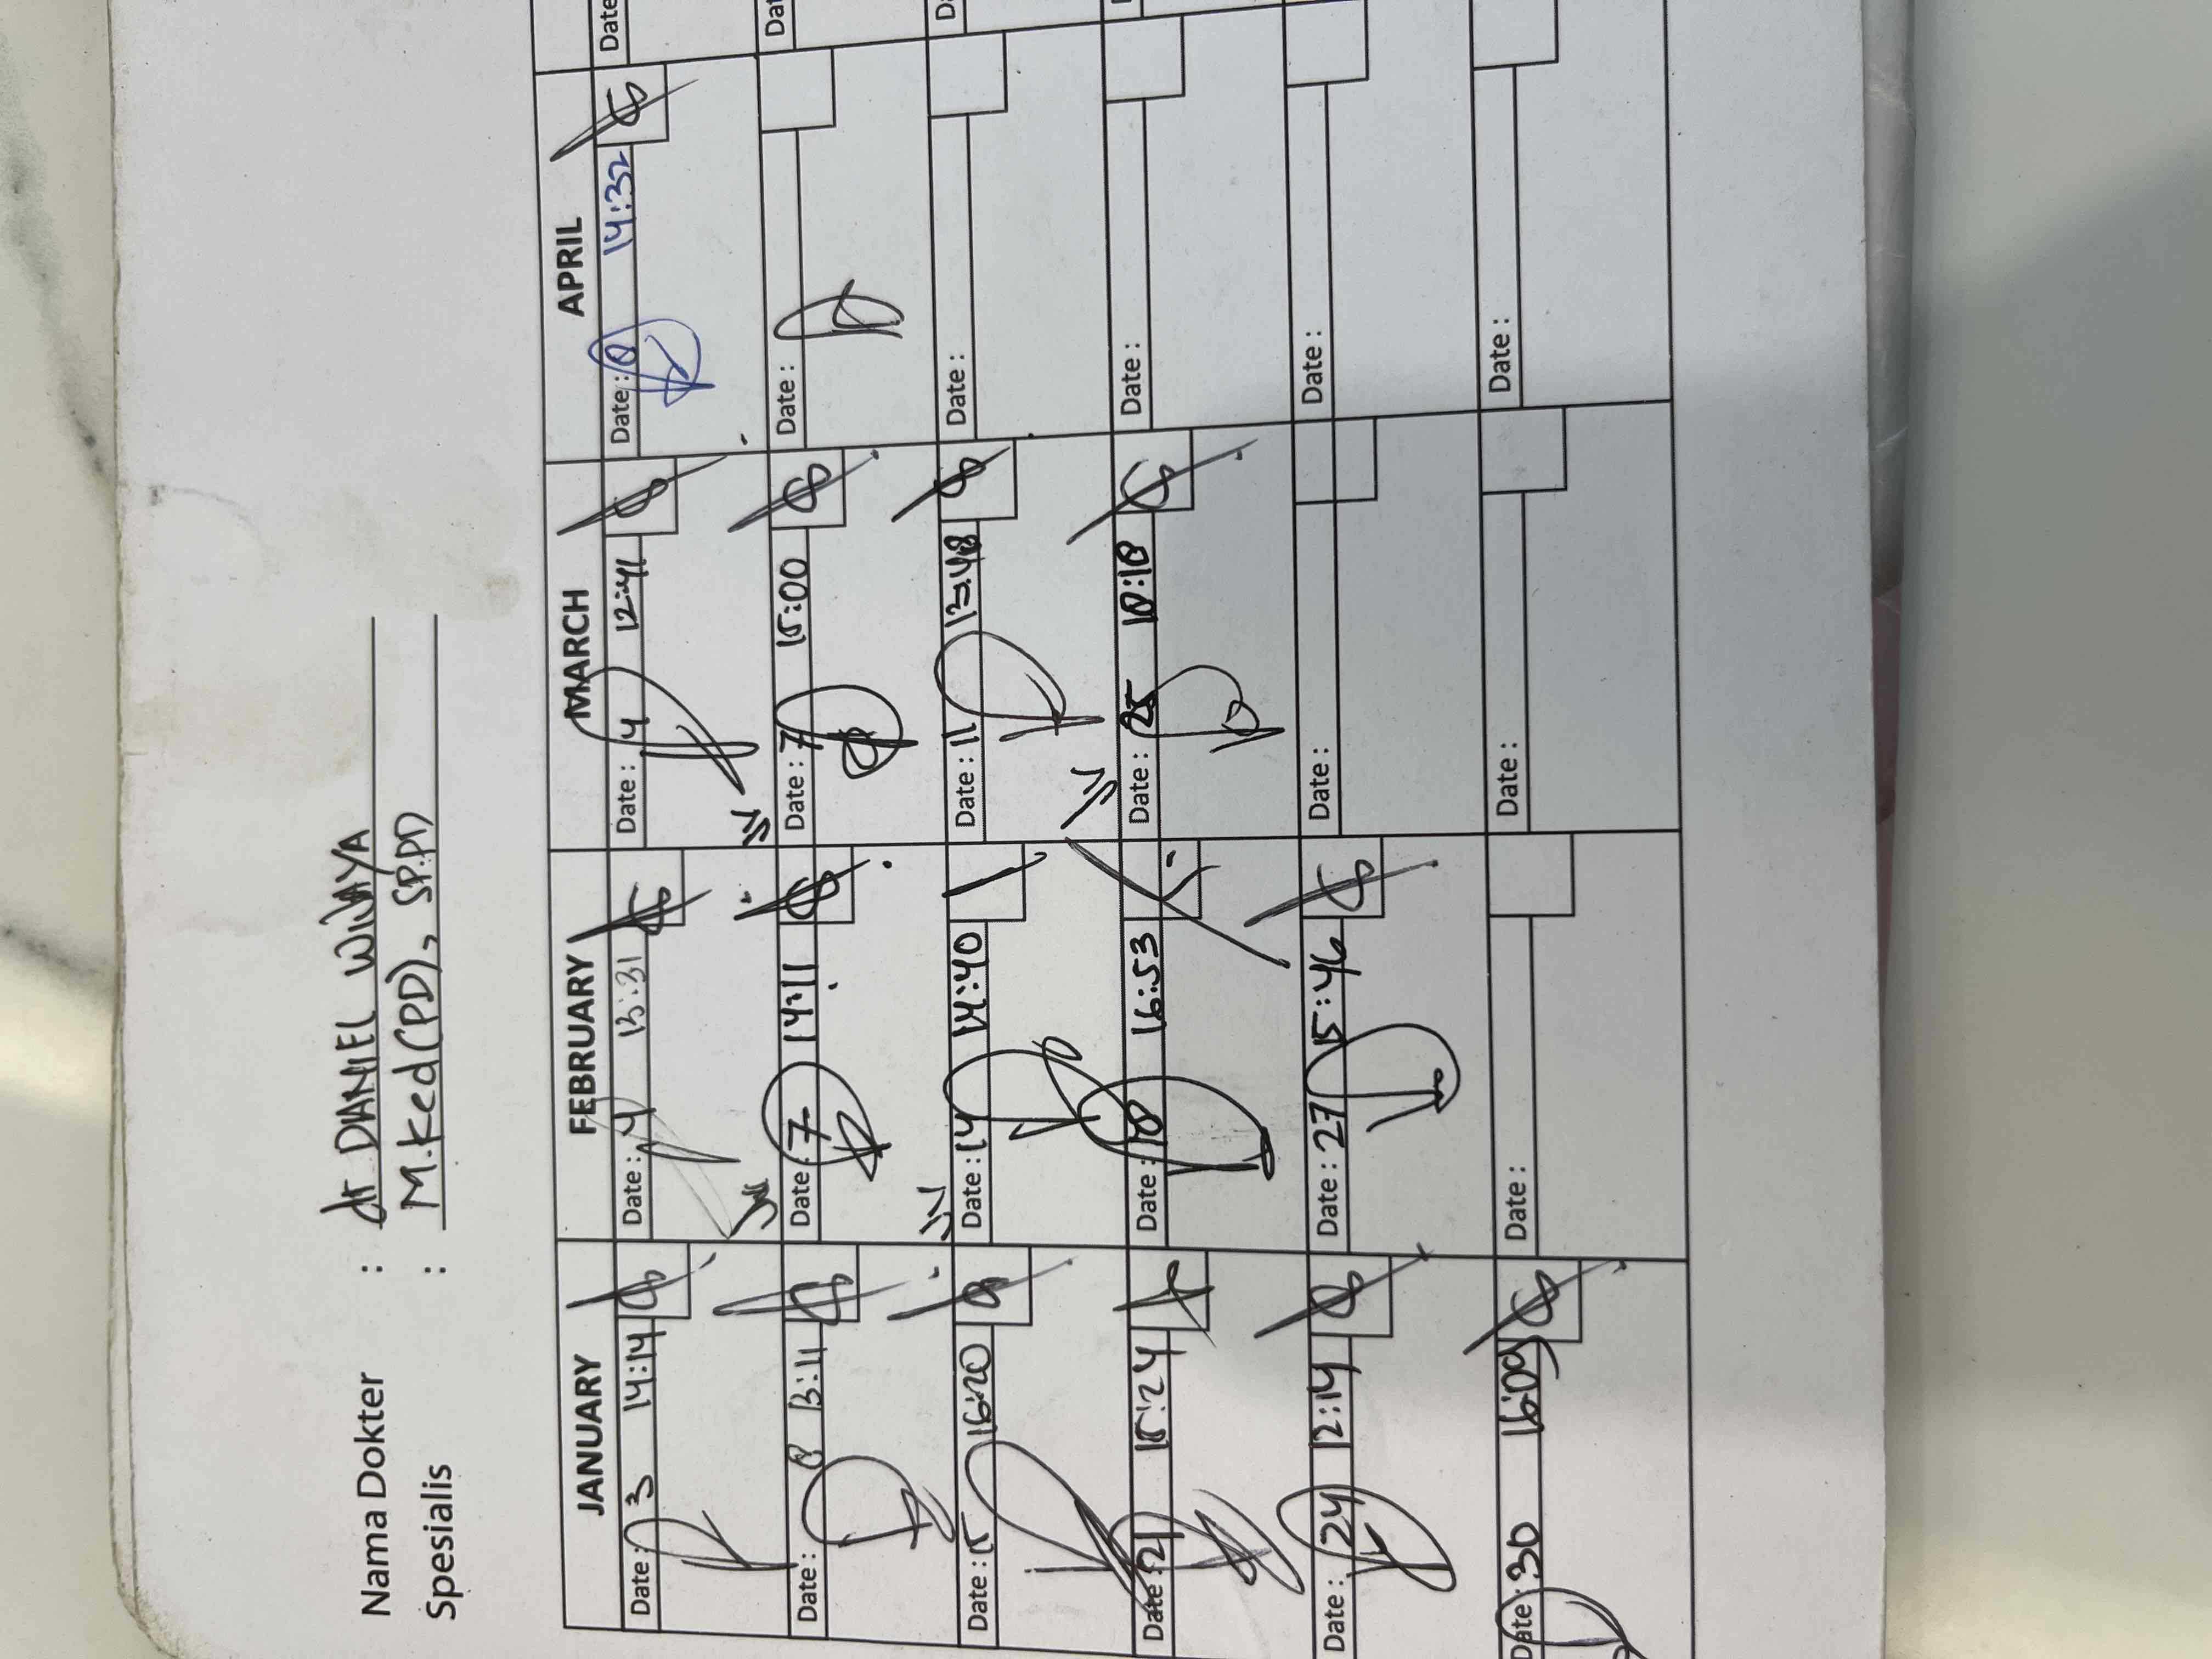 Nama Dokter : dr DANIEL WIJAYA
Spesialis : M.Ked(PD), SP.PD
JANUARY FEBRUARY MARCH APRIL
Date: 3 14:14 Date: 4 13:31 Date: 4 12:41 Date: 8 14:32 Date
Date: 8 13:11 Date: 7 14:11 Date: 7 15:00 Date: Dat
Date: 15 16:20 Date: 14 14:40 Date: 11 13:48 Date: Da
Date: 21 15:24 Date: 18 16:53 Date: 25 18:18 Date:
Date: 24 12:14 Date: 27 15:46 Date: Date:
Date: 30 16:09 Date: Date: Date: